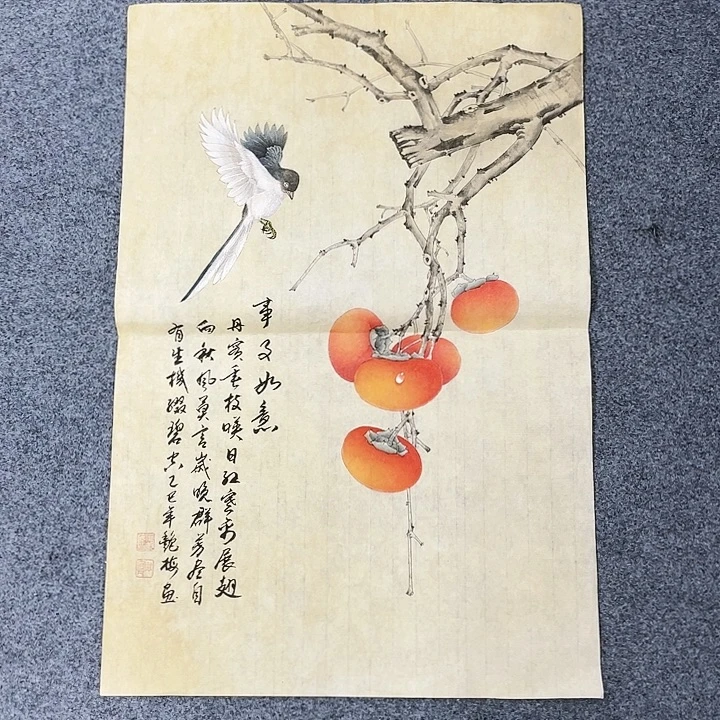 事事如意
丹實垂枝映日紅寒禽展翅
向秋風莫言歲晚群芳盡自
有生機綴碧空乙巳年艷梅畫